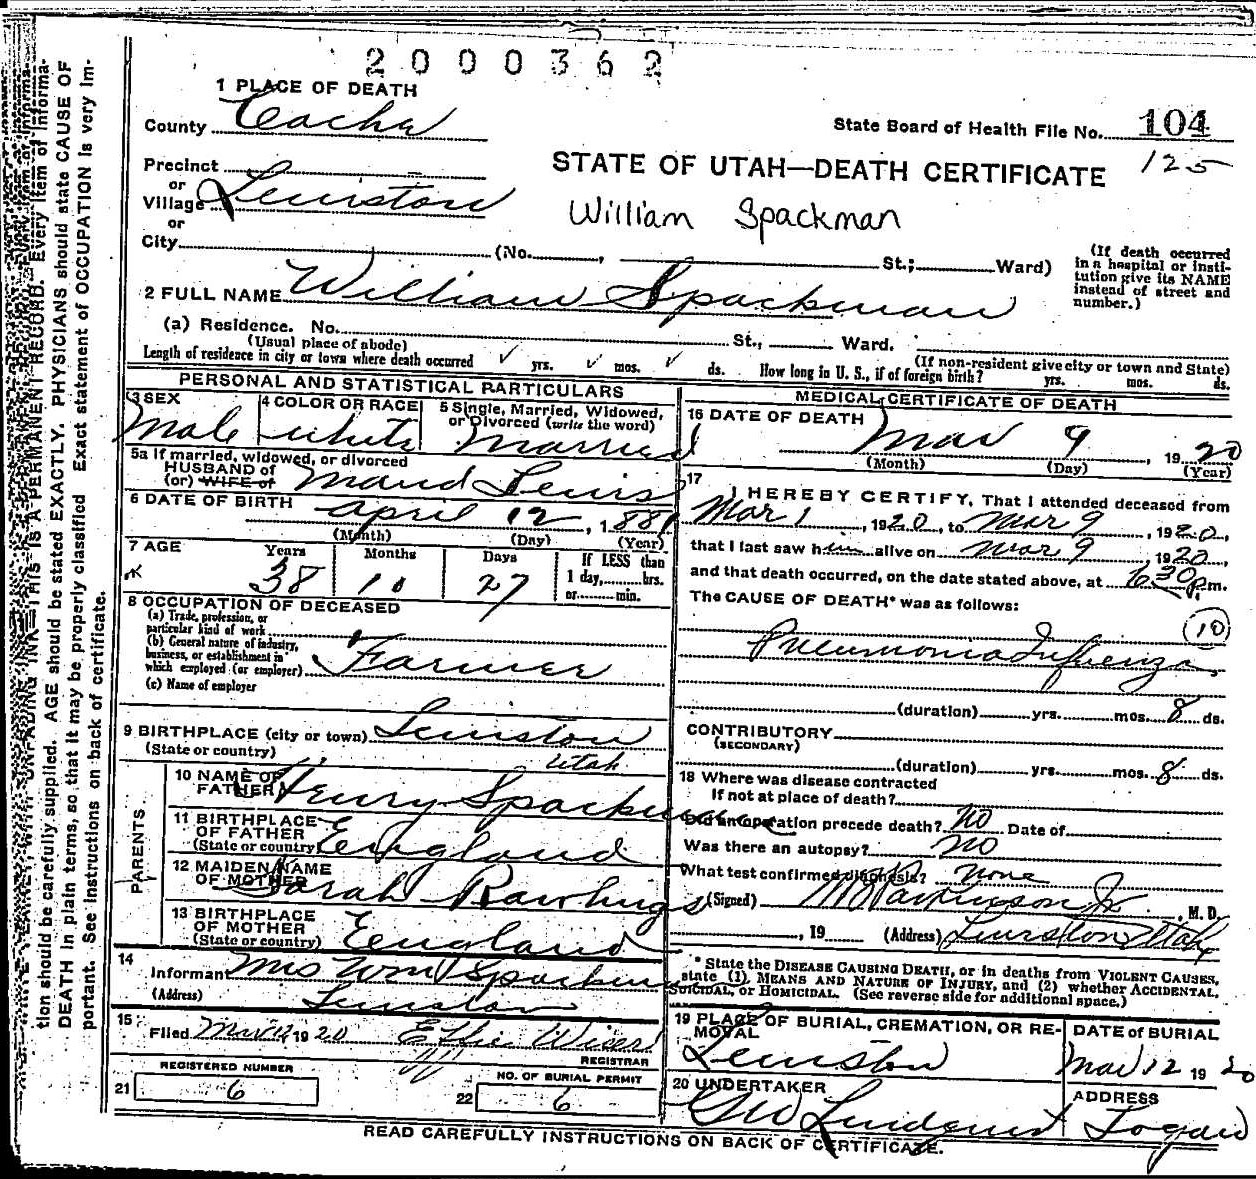 2000362
1 PLACE OF DEATH
County Cache
State Board of Health File No. 104
125
STATE OF UTAH—DEATH CERTIFICATE
Precinct
or
Village Lewiston
William Spackman
or
City (No. , St.; Ward)
(If death occurred in a hospital or institution give its NAME instead of street and number.)
2 FULL NAME William Spackman
(a) Residence. No. St., Ward.
(Usual place of abode) (If non-resident give city or town and State)
Length of residence in city or town where death occurred ✓ yrs. ✓ mos. ✓ ds. How long in U. S., if of foreign birth? yrs. mos. ds.
PERSONAL AND STATISTICAL PARTICULARS
3 SEX
Male
4 COLOR OR RACE
White
5 Single, Married, Widowed, or Divorced (write the word)
Married
5a If married, widowed, or divorced
HUSBAND of
(or) WIFE of Maud Lewis
6 DATE OF BIRTH April 12, 1881
(Month) (Day) (Year)
7 AGE Years Months Days If LESS than
38 10 27 1 day, hrs.
or min.
8 OCCUPATION OF DECEASED
(a) Trade, profession, or
particular kind of work
(b) General nature of industry,
business, or establishment in
which employed (or employer) Farmer
(c) Name of employer
9 BIRTHPLACE (city or town) Lewiston
(State or country) Utah
PARENTS
10 NAME OF
FATHER Henry Spackman
11 BIRTHPLACE
OF FATHER
(State or country) England
12 MAIDEN NAME
OF MOTHER Sarah Rawlings
13 BIRTHPLACE
OF MOTHER
(State or country) England
14
Informant Mrs Wm Spackman
(Address) Lewiston
15
Filed Mar 12 1920 Effie Wiser
REGISTRAR
REGISTERED NUMBER
21 6
NO. OF BURIAL PERMIT
22 6
MEDICAL CERTIFICATE OF DEATH
16 DATE OF DEATH
Mar 9, 1920
(Month) (Day) (Year)
17
I HEREBY CERTIFY, That I attended deceased from
Mar 1, 1920, to Mar 9, 1920,
that I last saw him alive on Mar 9 1920,
and that death occurred, on the date stated above, at 630 p.m.
The CAUSE OF DEATH* was as follows:
(10)
Pneumonia Influenza
(duration) yrs. mos. 8 ds.
CONTRIBUTORY
(SECONDARY)
(duration) yrs. mos. 8 ds.
18 Where was disease contracted
If not at place of death?
Did an operation precede death? No Date of
Was there an autopsy? No
What test confirmed diagnosis? None
(Signed) Parkinson Jr., M. D.
, 19 (Address) Lewiston Utah
* State the DISEASE CAUSING DEATH, or in deaths from VIOLENT CAUSES,
state (1), MEANS AND NATURE OF INJURY, and (2) whether ACCIDENTAL,
SUICIDAL, or HOMICIDAL. (See reverse side for additional space.)
19 PLACE OF BURIAL, CREMATION, OR REMOVAL
Lewiston
DATE of BURIAL
Mar 12 1920
20 UNDERTAKER
Geo Lindquist
ADDRESS
Logan
READ CAREFULLY INSTRUCTIONS ON BACK OF CERTIFICATE.
UNFADING INK—THIS IS A PERMANENT RECORD. Every item of informa-
tion should be carefully supplied. AGE should be stated EXACTLY. PHYSICIANS should state CAUSE OF
DEATH in plain terms, so that it may be properly classified. Exact statement of OCCUPATION is very im-
portant. See instructions on back of certificate.